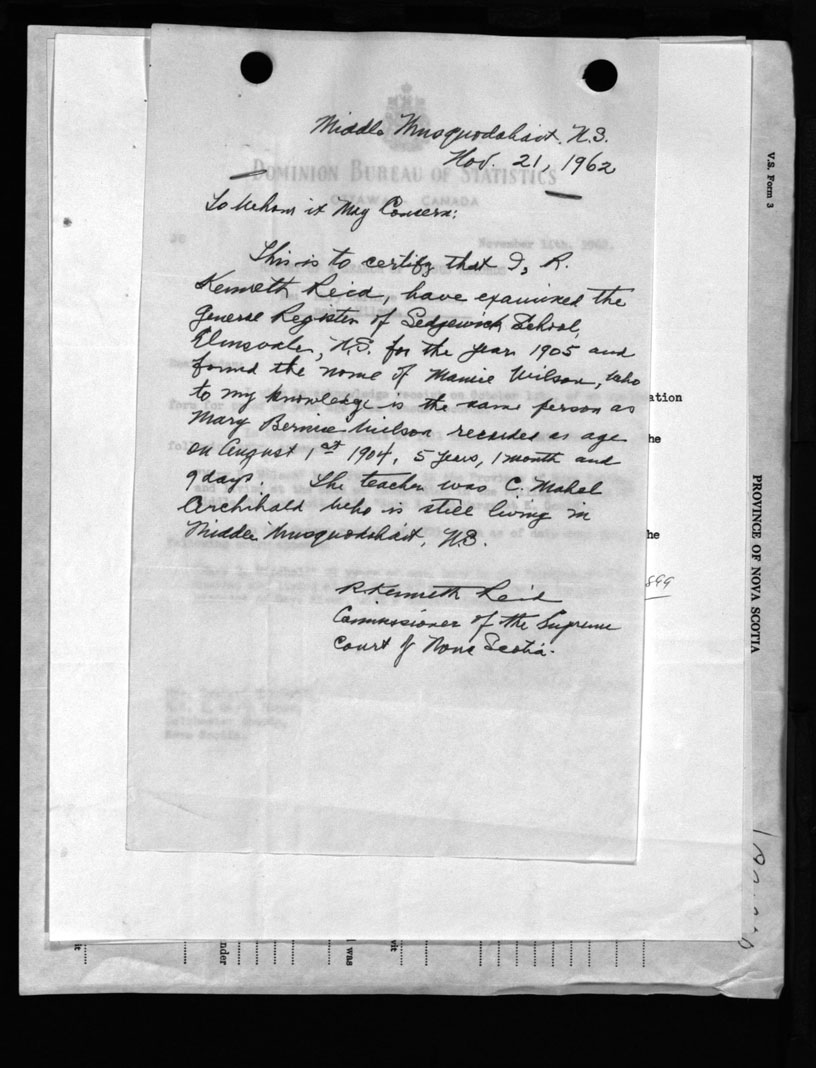 Middle Musquodoboit, N.S.
Nov. 21, 1962
DOMINION BUREAU OF STATISTICS
OTTAWA - CANADA
To Whom it May Concern:
November 14th, 1962.
This is to certify that I, R.
Kenneth Reid, have examined the
General Register of Sedgewick School,
Elmsvale, N.S. for the year 1905 and
found the name of Mamie Wilson, who
to my knowledge is the same person as
Mary Bernice Wilson recorded as age
on August 1st 1904, 5 years, 1 month and
9 days. The teacher was C. Mabel
Archibald who is still living in
Middle Musquodoboit, N.S.
R Kenneth Reid
Commissioner of the Supreme
Court of Nova Scotia.
ation
he
he
899
Nova Scotia.
V.S. Form 3
PROVINCE OF NOVA SCOTIA
it
nder
was
vit